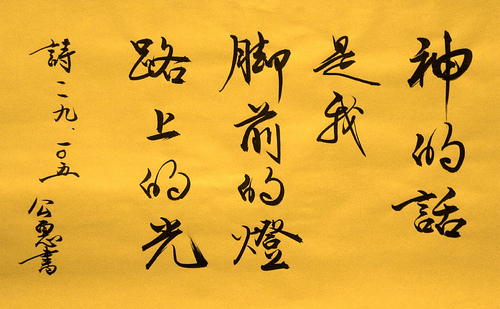 神的話
是我
脚前的燈
路上的光
詩一一九.一〇五 公惠書